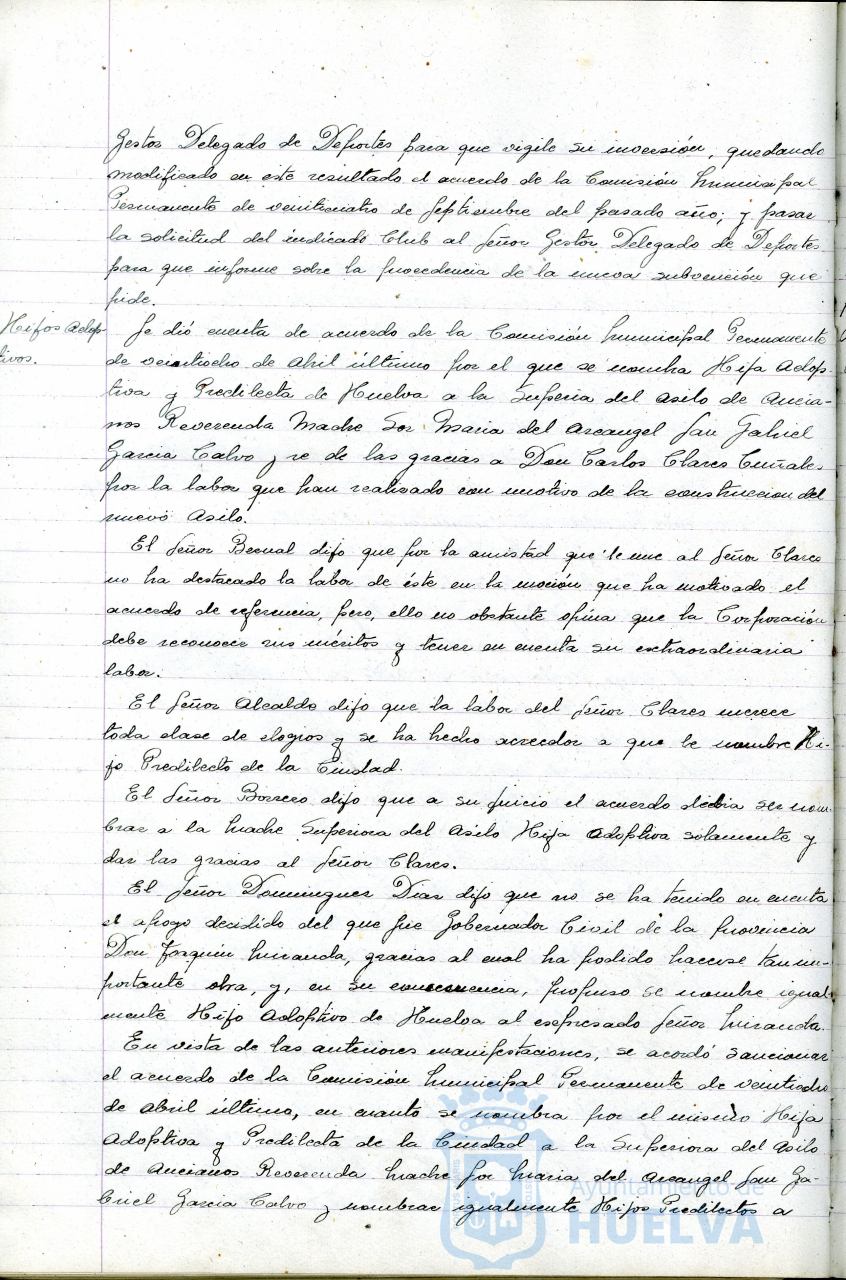 Gestor Delegado de Deportes para que vigile su inversión, quedando
modificado en este resultado el acuerdo de la Comisión Municipal
Permanente de veinticuatro de Septiembre del pasado año; y pasar
la solicitud del indicado Club al Señor Gestor Delegado de Deportes
para que informe sobre la procedencia de la nueva subvención que
pide.
Hijos Adop-
tivos.
Se dió cuenta de acuerdo de la Comisión Municipal Permanente
de veintiocho de Abril último por el que se nombra Hija Adop-
tiva y Predilecta de Huelva a la Superia del Asilo de Ancia-
nos Reverenda Madre Sor Maria del Arcangel San Gabriel
Garcia Calvo y se de las gracias a Don Carlos Clares
por la labor que han realisado con motivo de la construccion del
nuevo Asilo.
El Señor Bernal dijo que por la amistad que le une al Señor Clares
no ha destacado la labor de éste en la moción que ha motivado el
acuerdo de referencia, pero, ello no obstante opina que la Corporación
debe reconocer sus méritos y tener en cuenta su extraordinaria
labor.
El Señor Alcalde dijo que la labor del Señor Clares merece
toda clase de elogios y se ha hecho acreedor a que le nombre Hi-
jo Predilecto de la Ciudad.
El Señor Borrero dijo que a su juicio el acuerdo debia ser nom-
brar a la Madre Superiora del Asilo Hija Adoptiva solamente y
dar las gracias al Señor Clares.
El Señor Dominguez Diaz dijo que no se ha tenido en cuenta
el apoyo decidido del que fue Gobernador Civil de la provincia
Don Joaquin Miranda, gracias al cual ha podido hacerse tan im-
portante obra, y, en su consecuencia, propuso se nombre igual-
mente Hijo Adoptivo de Huelva al expresado Señor Miranda.
En vista de las anteriores manifestaciones, se acordó sancionar
el acuerdo de la Comisión Municipal Permanente de veintiocho
de Abril último, en cuanto se nombra por el mismo Hija
Adoptiva y Predilecta de la Ciudad a la Superiora del Asilo
de Ancianos Reverenda Madre Sor Maria del Arcangel San Ga-
briel Garcia Calvo y nombrar igualmente Hijos Predilectos a
Ayuntamiento de
HUELVA